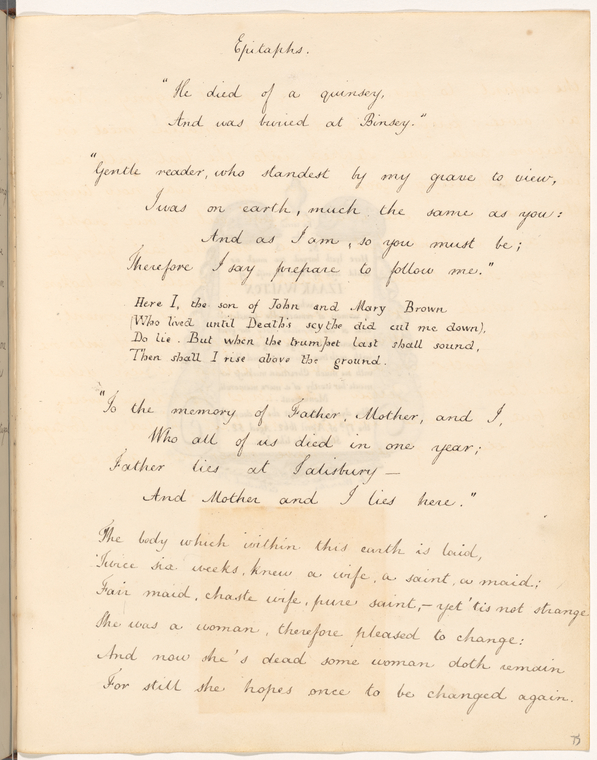 Epitaphs.
"He died of a quinsey,
And was buried at Binsey."
"Gentle reader, who standest by my grave to view,
I was on earth, much the same as you:
And as I am, so you must be;
Therefore I say prepare to follow me."
Here I, the son of John and Mary Brown
(Who lived until Death's scythe did cut me down),
Do lie. But when the trumpet last shall sound,
Then shall I rise above the ground.
"To the memory of Father, Mother, and I,
Who all of us died in one year;
Father lies at Salisbury —
And Mother and I lies here."
The body which within this earth is laid,
Twice six weeks, knew a wife, a saint, a maid;
Fair maid, chaste wife, pure saint, – yet 'tis not strange
She was a woman, therefore pleased to change:
And now she's dead some woman doth remain
For still she hopes once to be changed again.